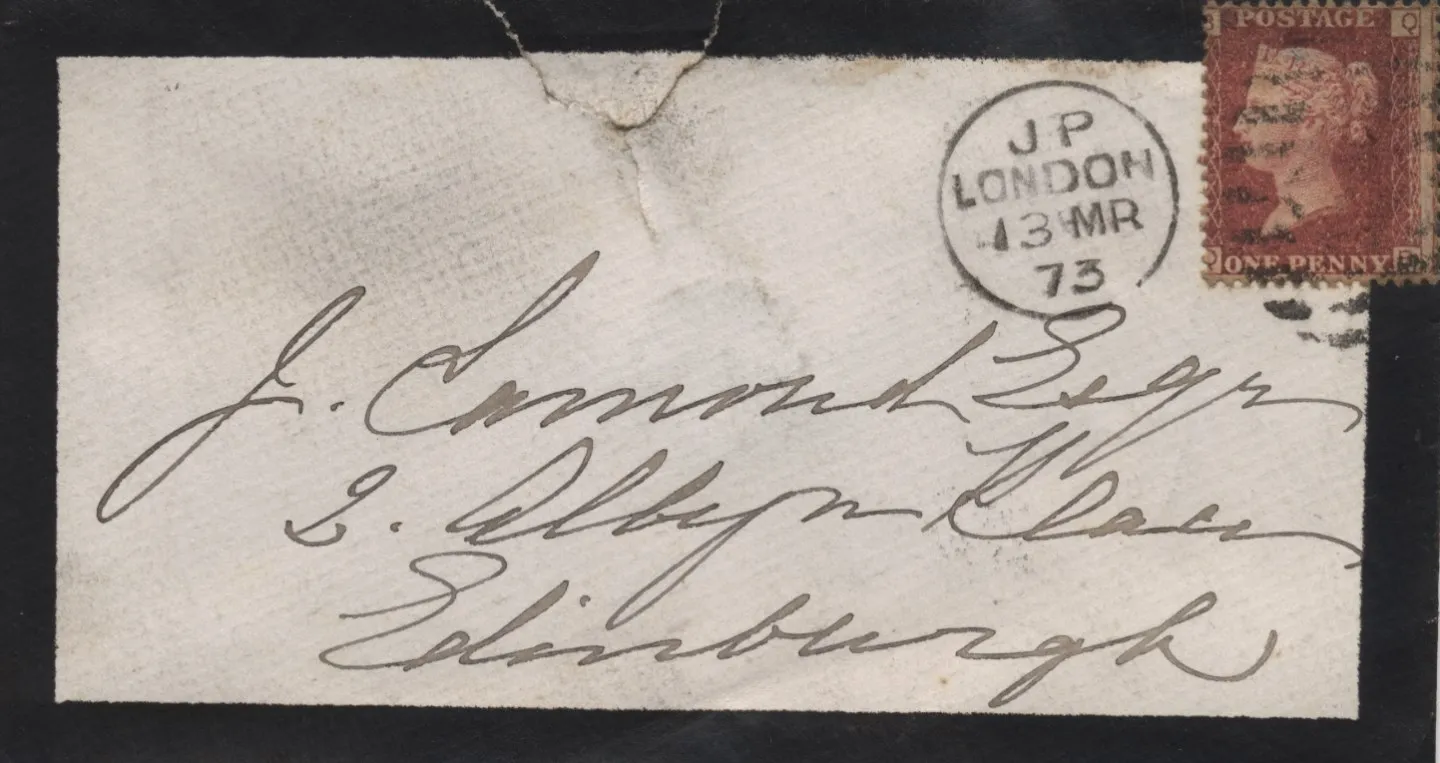 POSTAGE
Q
ONE PENNY
J P
LONDON
13 MR
73
J. Lamond Esqr
2. Albyn Place
Edinburgh